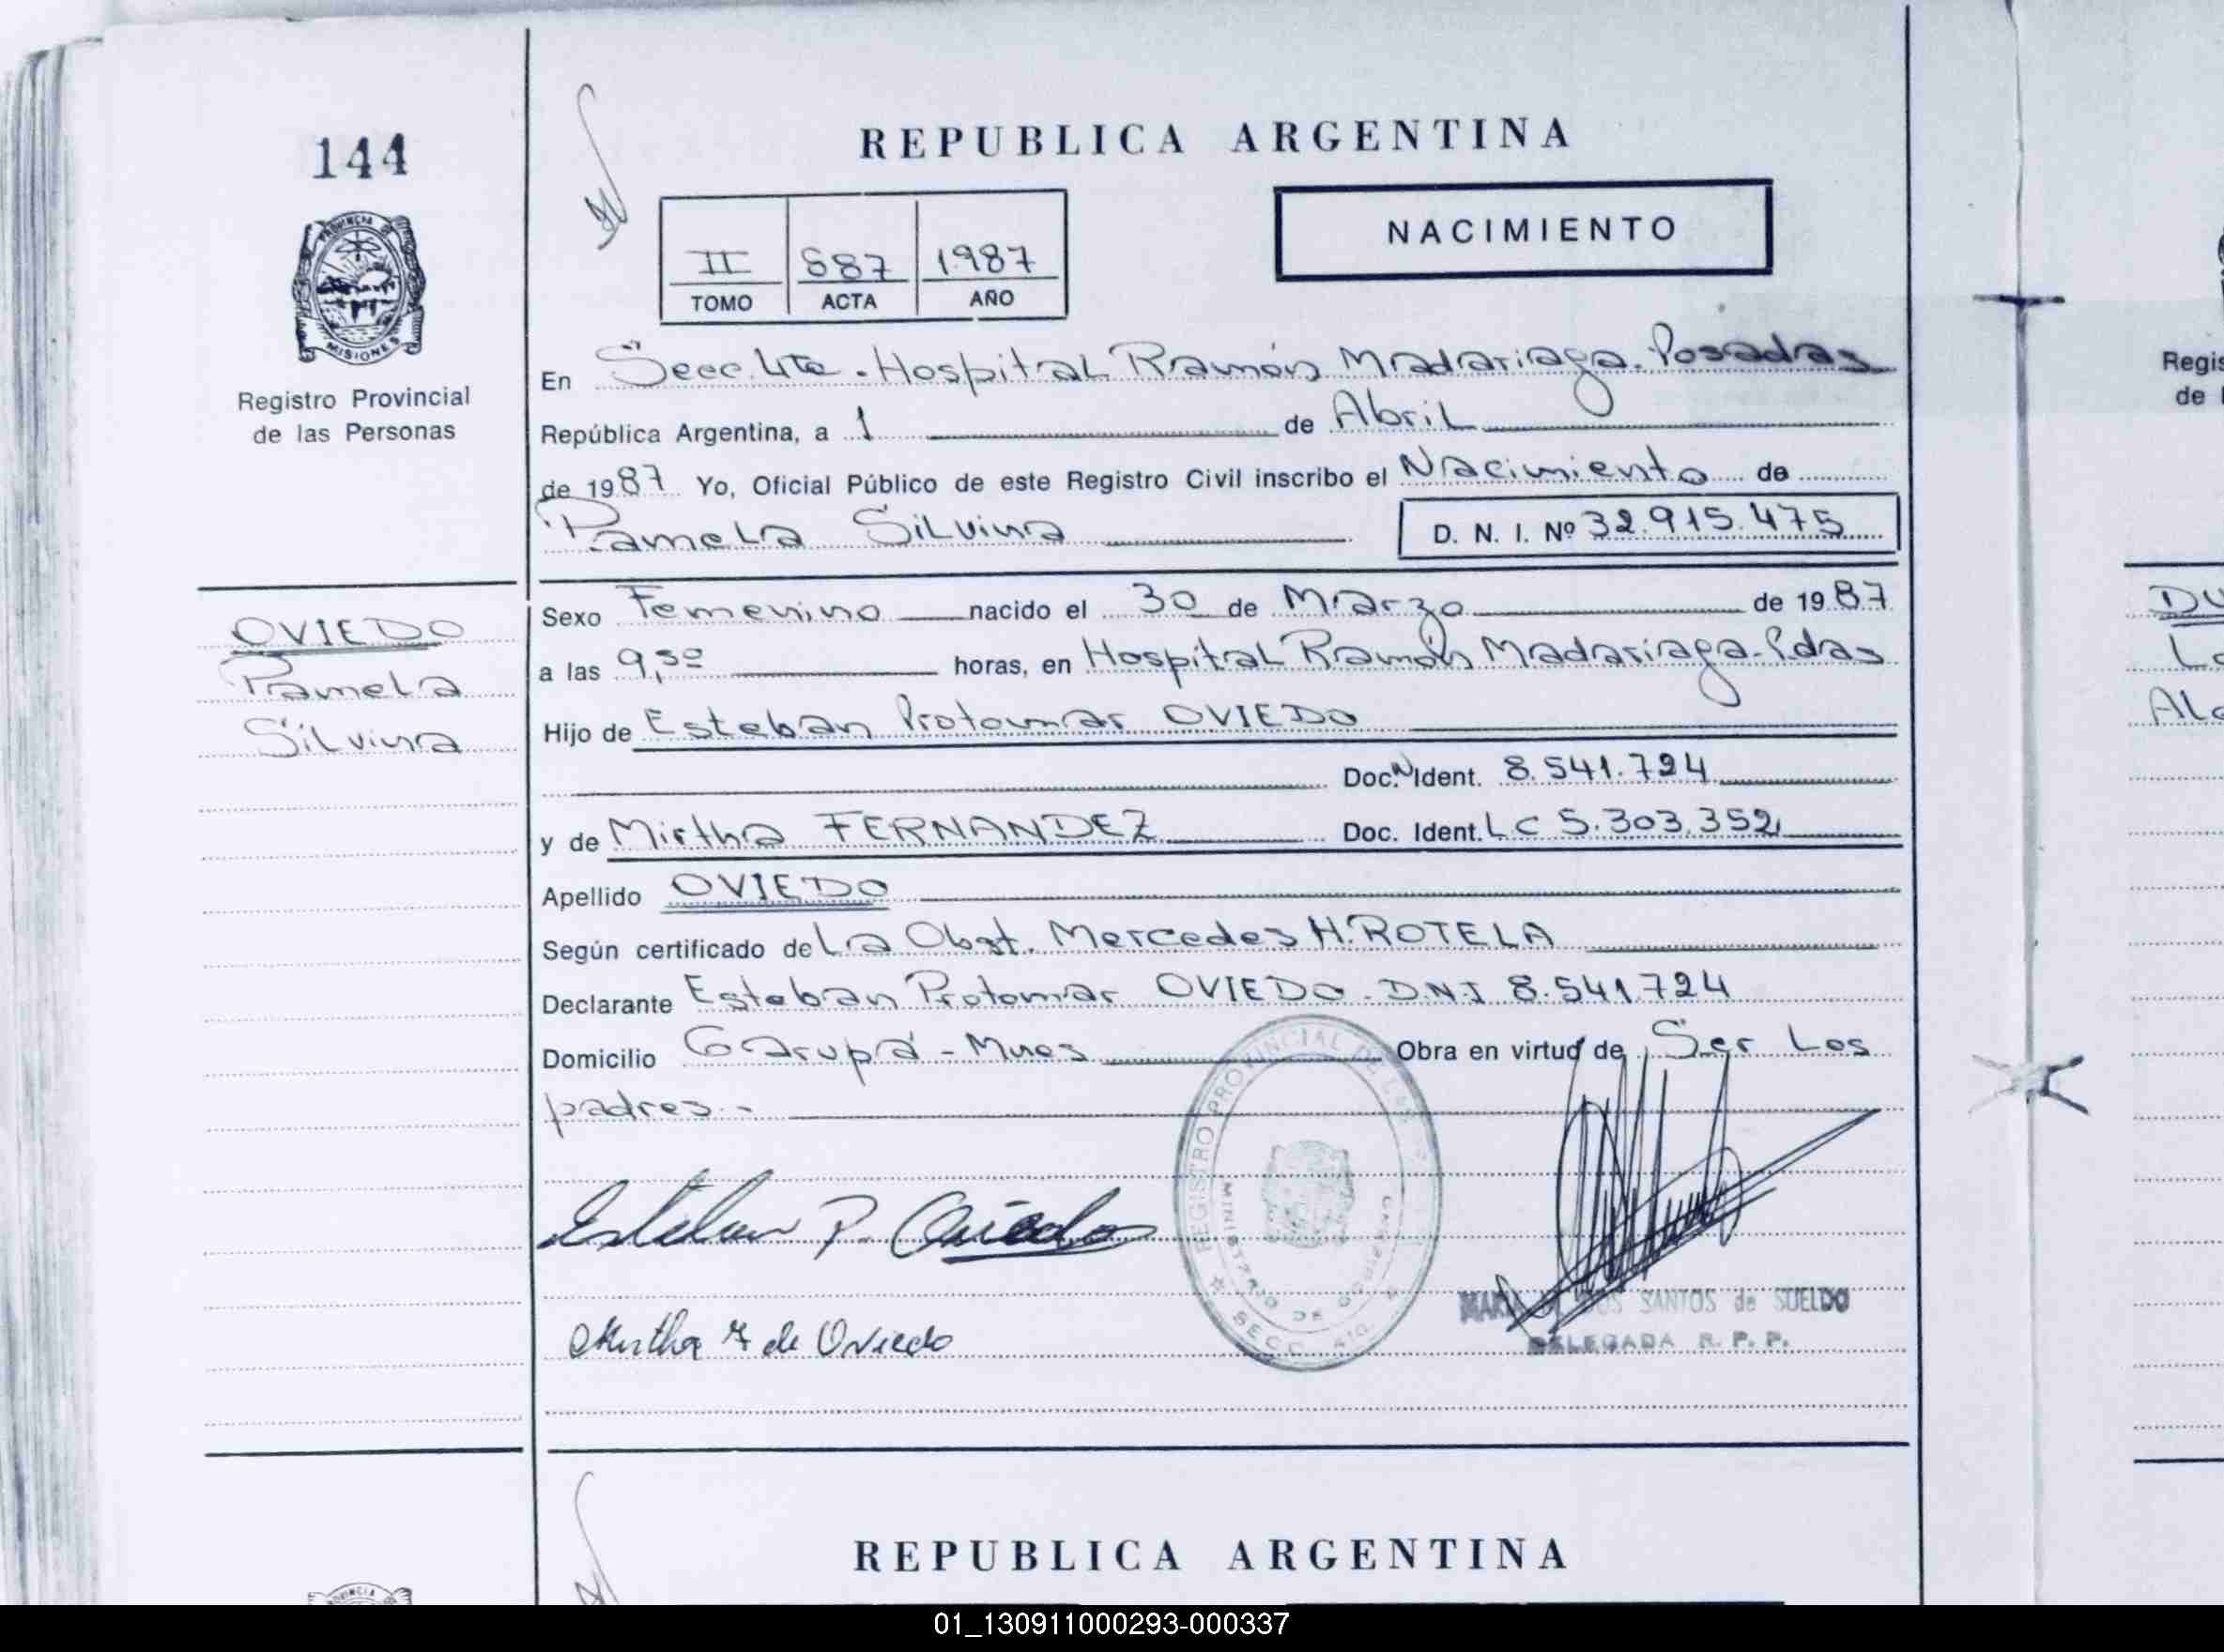 144
PROVINCIA DE
MISIONES
Registro Provincial
de las Personas
REPUBLICA ARGENTINA
II 587 1987
TOMO ACTA AÑO
NACIMIENTO
En Secc. 4ta. Hospital Ramón Madariaga. Posadas
República Argentina, a 1 de Abril
de 1987 Yo, Oficial Público de este Registro Civil inscribo el Nacimiento de
Pamela Silvina D. N. I. Nº 32.915.475
OVIEDO
Pamela
Silvina
Sexo Femenino nacido el 30 de Marzo de 1987
a las 9,30 horas, en Hospital Ramón Madariaga-Pdas
Hijo de Esteban Protomar OVIEDO
Doc. Ident. 8.541.724
y de Mirtha FERNANDEZ Doc. Ident. LC 5.303.352
Apellido OVIEDO
Según certificado de La Obst. Mercedes H. ROTELA
Declarante Esteban Protomar OVIEDO. D.N.I 8.541.724
Domicilio Garupá - Mnes Obra en virtud de Ser Los
padres.-
REGISTRO PROVINCIAL DE LAS
MINISTERIO DE GOBIERNO
SECC. 4ta.
Esteban P. Oviedo
SANTOS de SUELDO
DELEGADA R. P. P.
Mirtha F de Oviedo
REPUBLICA ARGENTINA
Regis
de
DU
Lo
Ale
01_130911000293-000337